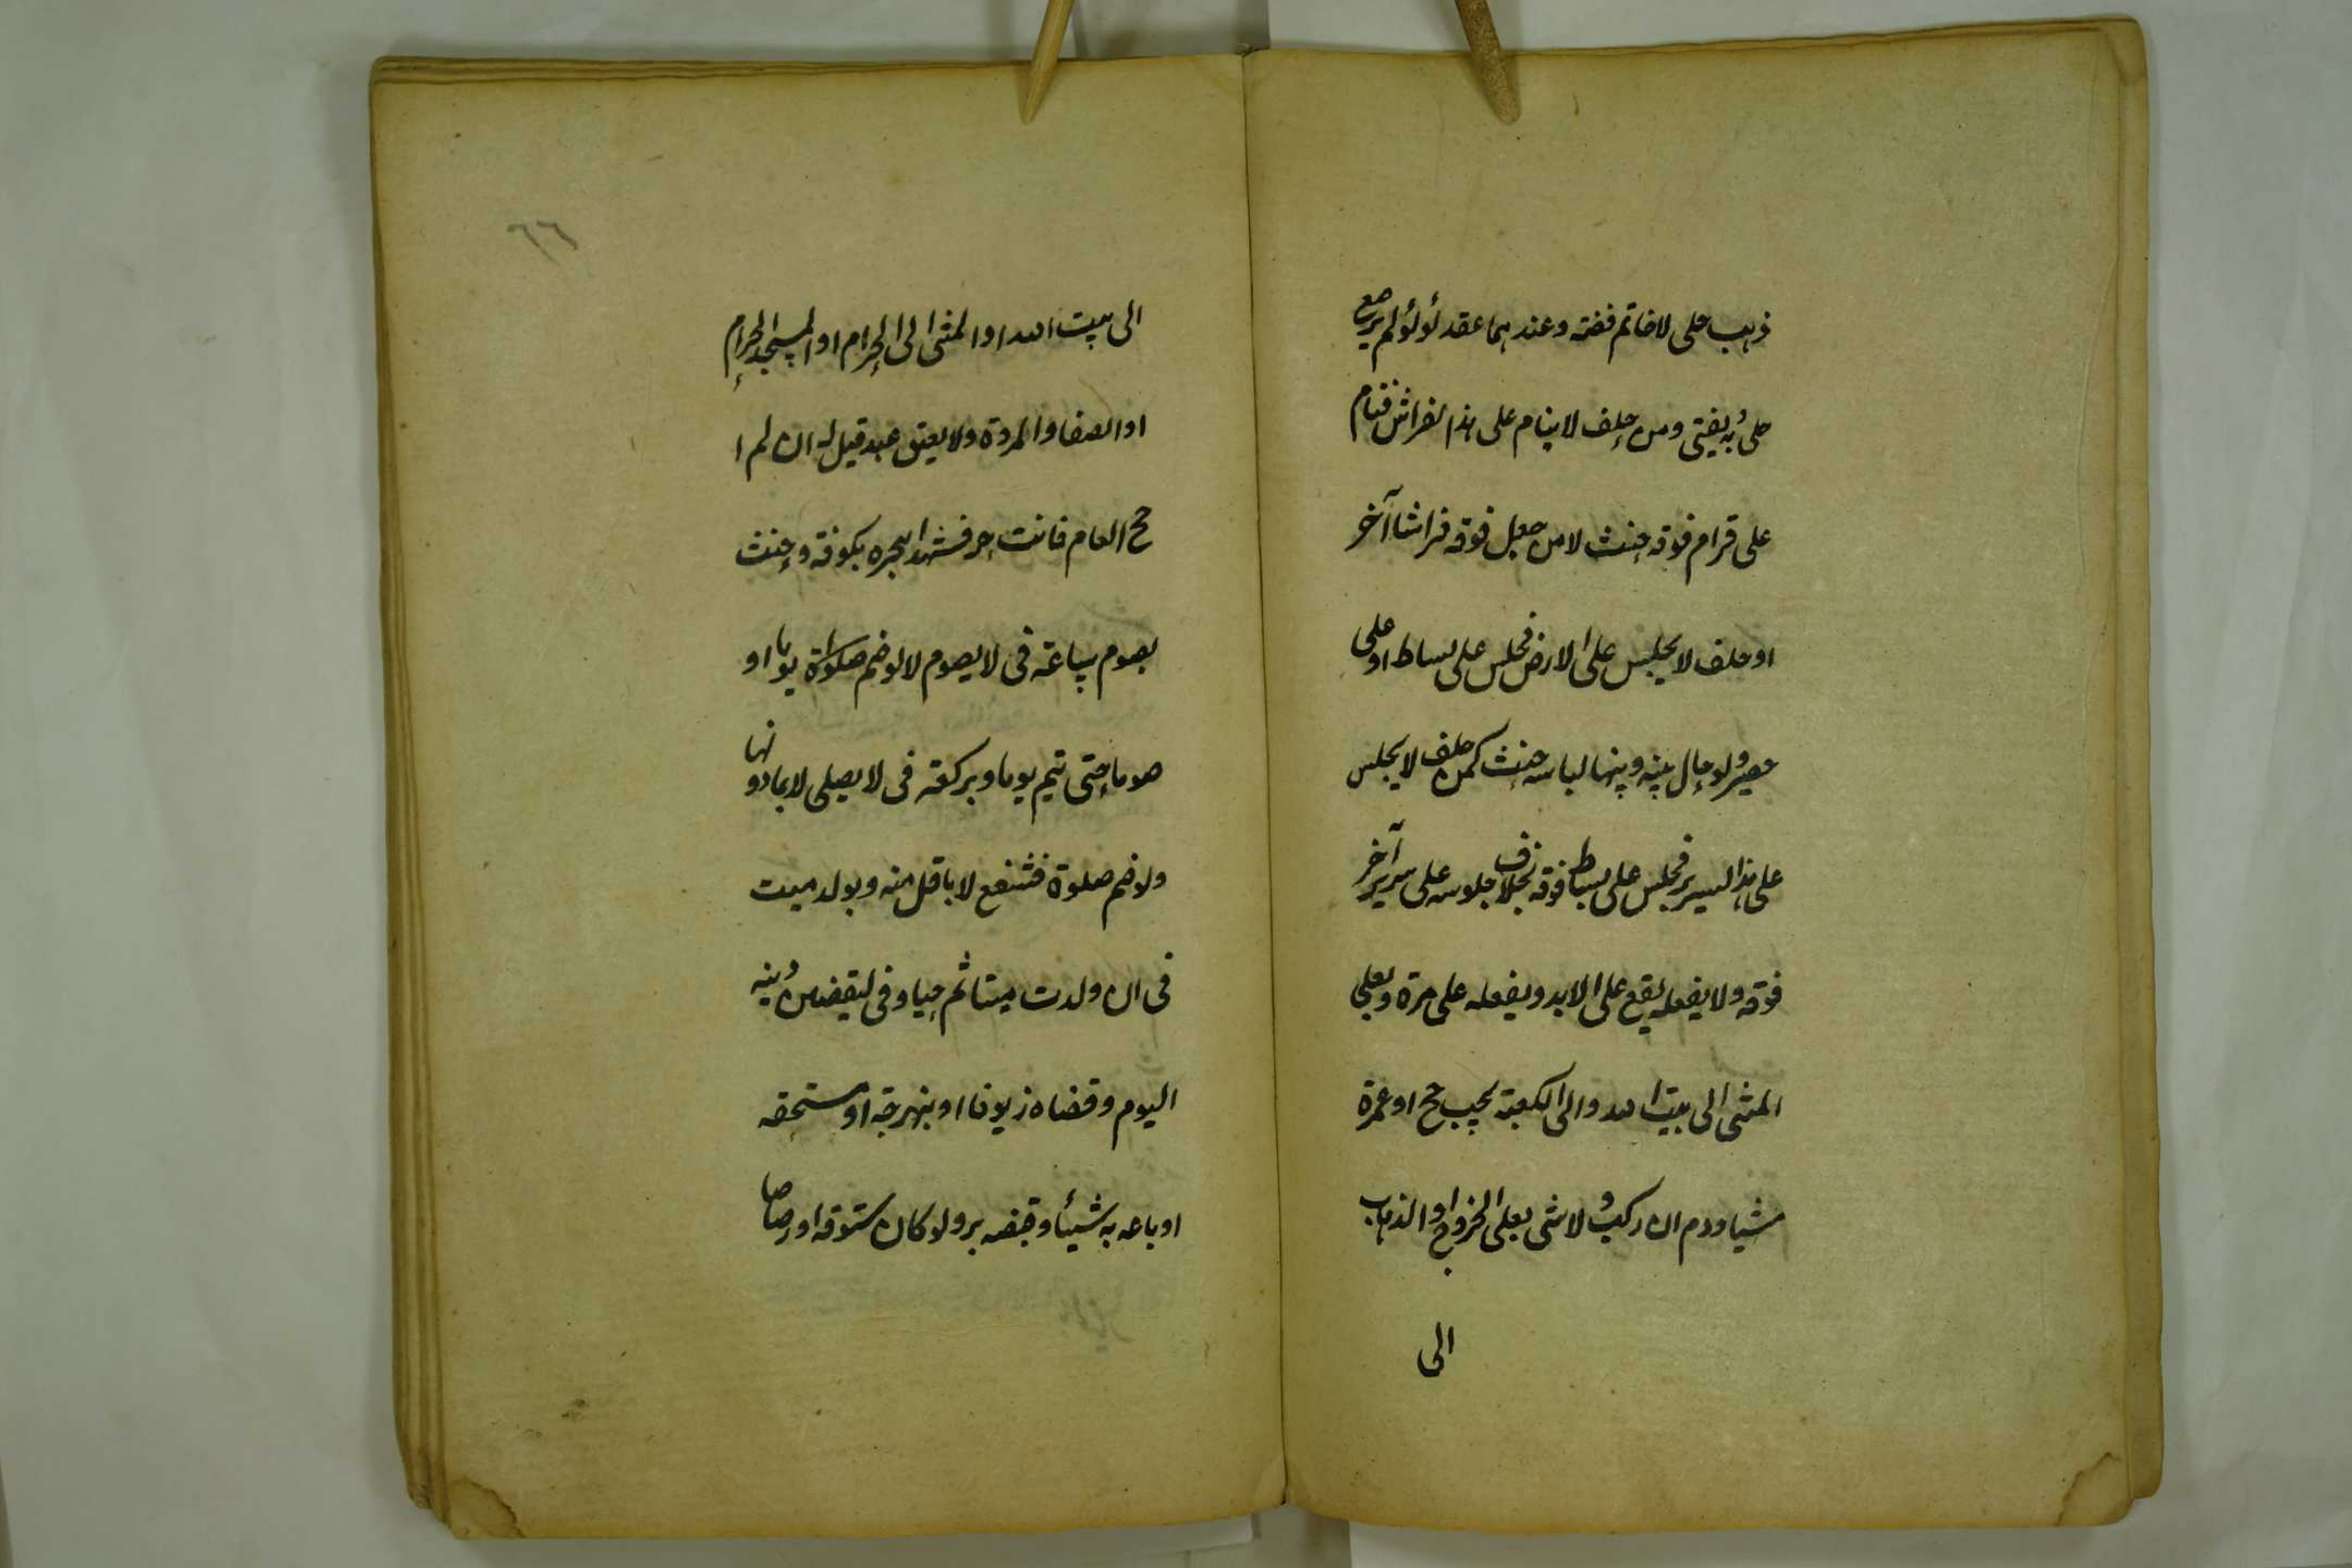 ذهب حلى لا خاتم فضة وعندهما عقد لؤلؤ لم يرصع
حلى وبه يفتى ومن حلف لا ينام على هذا الفراش فنام
على قرام فوقه حنث لا من جعل فوقه فراشا آخر
او حلف لا يجلس على الارض فجلس على بساط او على
حصير ولو حال بينه وبينها لباسه حنث كمن حلف لا يجلس
على هذا السرير فجلس على بساط فوقه بخلاف جلوسه على سرير آخر
فوقه ولا يفعله يقع على الابد ويفعله على مرة وبعلى
المشى الى بيت الله والى الكعبة يجب حج او عمرة
مشيا ودم ان ركب ولا شى بعلى الخروج او الذهاب
الى
٦٦
الى بيت الله او المشى الى الحرام او المسجد الحرام
او الصفا والمروة ولا يعتق عبد قيل له ان لم ا
حج العام فانت حر فشهدا بنحره بكوفة وحنث
بصوم ساعة فى لا يصوم لا لو ضم صلوة يوما او
صوما حتى يتم يوما وبركعة فى لا يصلى لا بما دونها
ولو ضم صلوة فشفع لا باقل منه وبولد ميت
فى ان ولدت ميتا ثم حيا وفى ليقضين دينه
اليوم وقضاه زيوفا او بنهرجة او مستحقه
او باعه به شيئا وقبضه بر ولو كان ستوقة او رصاصا